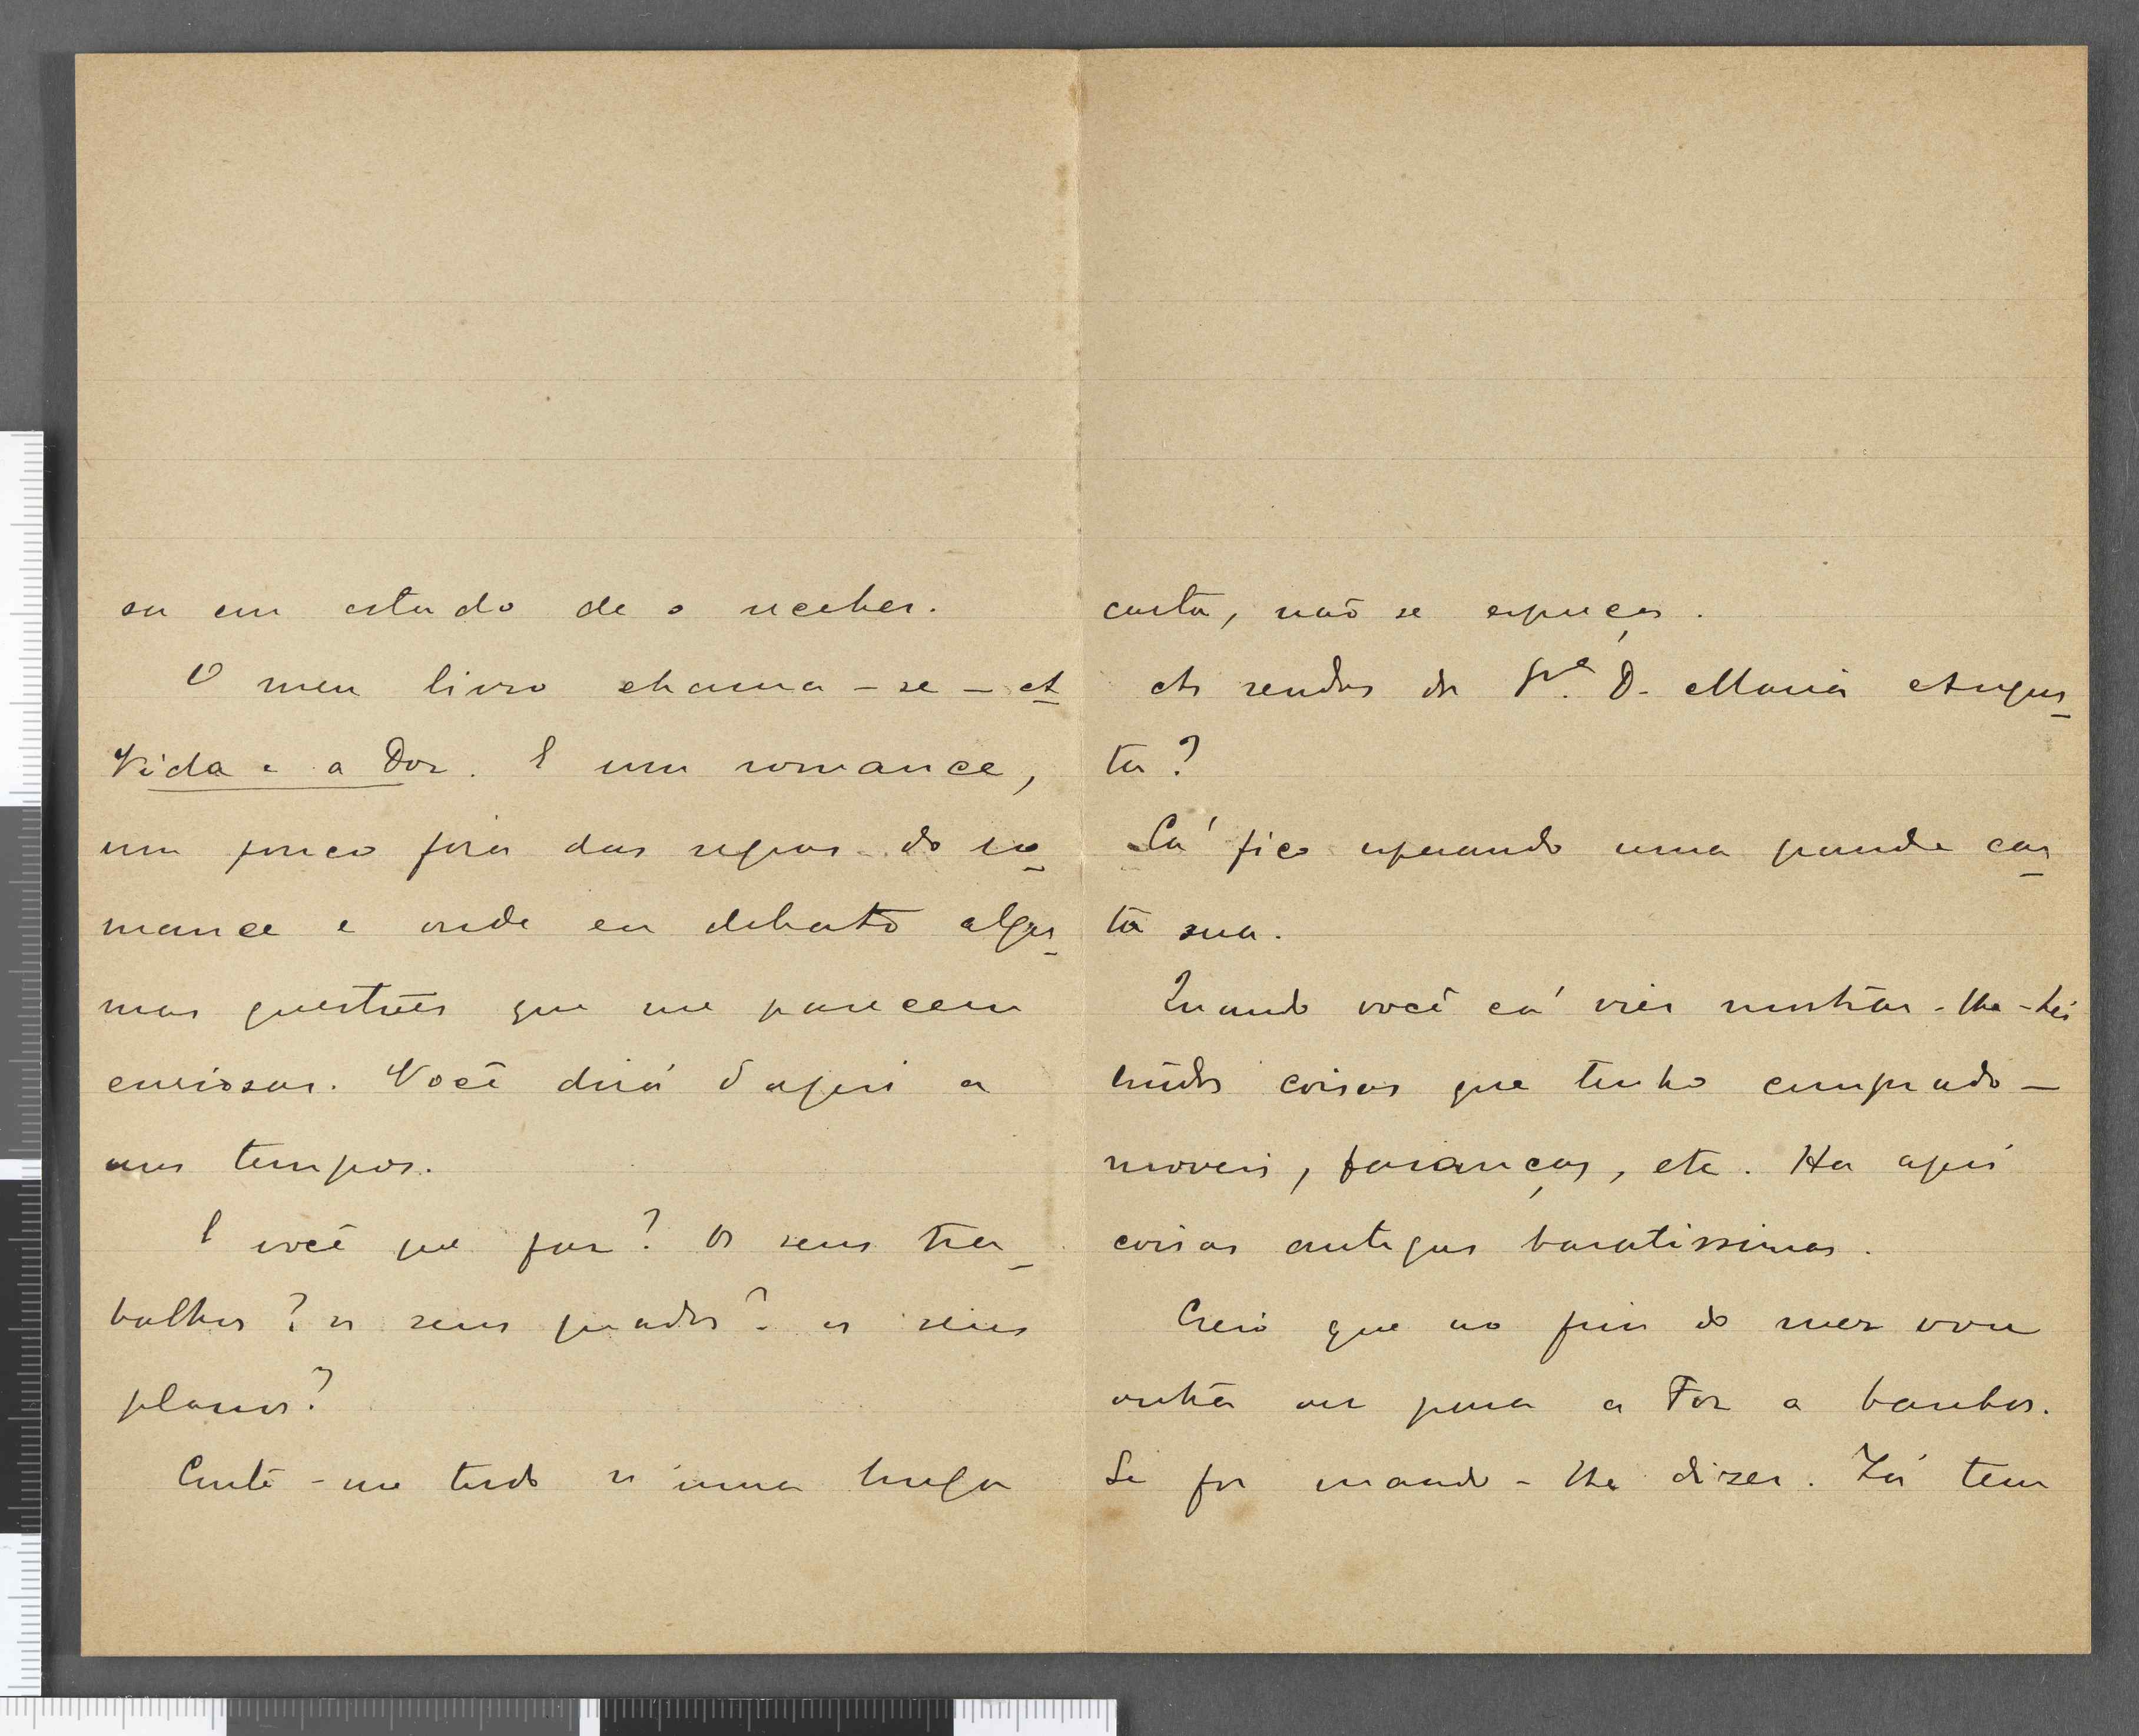 ou em estado de o receber.
O meu livro chama-se - A
Vida e a Dor. É um romance,
um pouco fóra das regras do ro-
mance e onde eu debato algu-
mas questões que me parecem
curiosas. Você dirá d'aqui a
uns tempos.
E você que faz? Os seus tra-
balhos? os seus quadros? os seus
planos?
Conte-me tudo n'uma longa
carta, não se esqueça.
As rendas da Sr.ª D. Maria Augus-
ta?
Cá fico esperando uma grande car-
ta sua.
Quando você cá vier mostrar-lhe-hei
lindas coisas que tenho comprado -
moveis, faianças, etc. Ha aqui
coisas antigas baratissimas.
Creio que no fim do mez vou
outra vez para a Foz a banhos.
Se for mando-lhe dizer. Lá tem